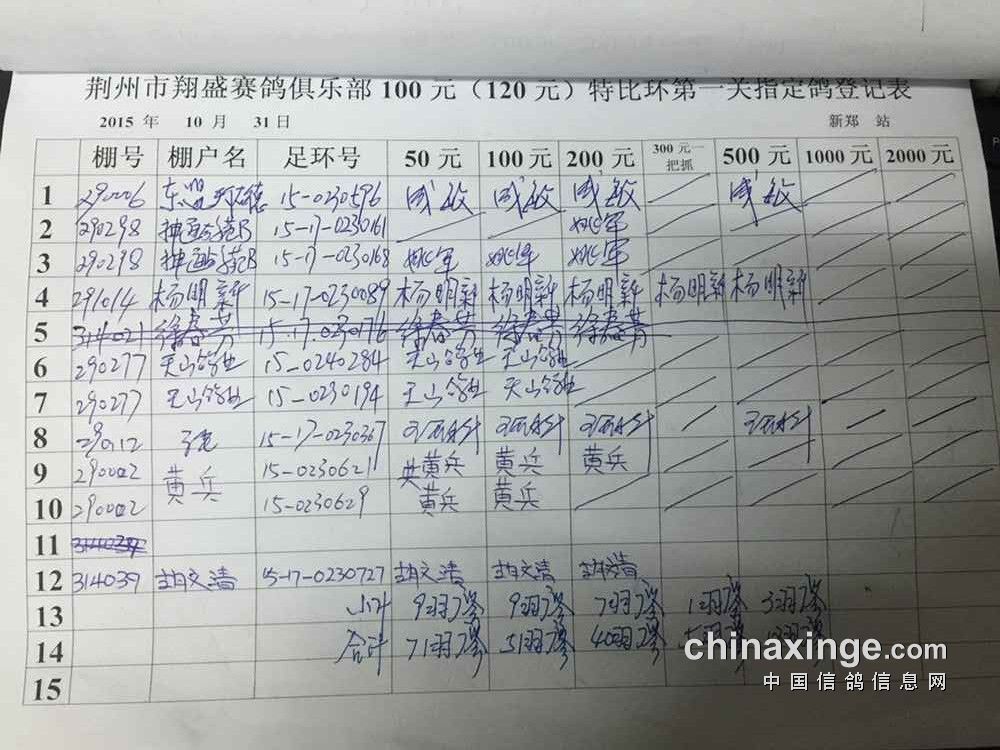 荆州市翔盛赛鸽俱乐部 100 元（120 元）特比环第一关指定鸽登记表
2015 年 10 月 31 日 新郑 站
棚号 棚户名 足环号 50 元 100 元 200 元 300 元一把抓 500 元 1000 元 2000 元
1 290006 15-0230596
2 290298 15-17-0230161 姚军
3 290298 15-17-0230168 姚军 姚军 姚军
4 291014 杨明新 15-17-0230089 杨明新 杨明新 杨明新 杨明新 杨明新
5 314021 徐春芳 15-17-0230176 徐春芳 徐春芳 徐春芳
6 290277 天山鸽业 15-0240284 天山鸽业 天山鸽业
7 290277 天山鸽业 15-0230194 天山鸽业 天山鸽业
8 15-17-0230367
9 290002 黄兵 15-0230621 黄兵 黄兵 黄兵
10 290002 15-0230629 黄兵 黄兵
11
12 314039 胡文清 15-17-0230727 胡文清 胡文清 胡文清
13 小计 9羽次 9羽次 7羽次 1羽次 3羽次
14 合计 71羽次 51羽次 40羽次
15
chinaxinge.com
中国信鸽信息网